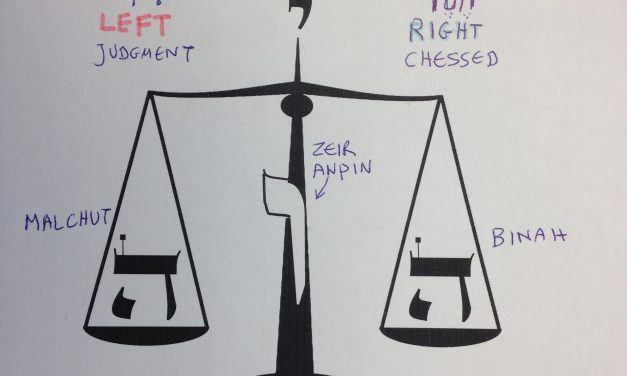 LEFT
JUDGMENT
י
RIGHT
CHESSED
ZEIR
ANPIN
ו
MALCHUT
ה
BINAH
ה